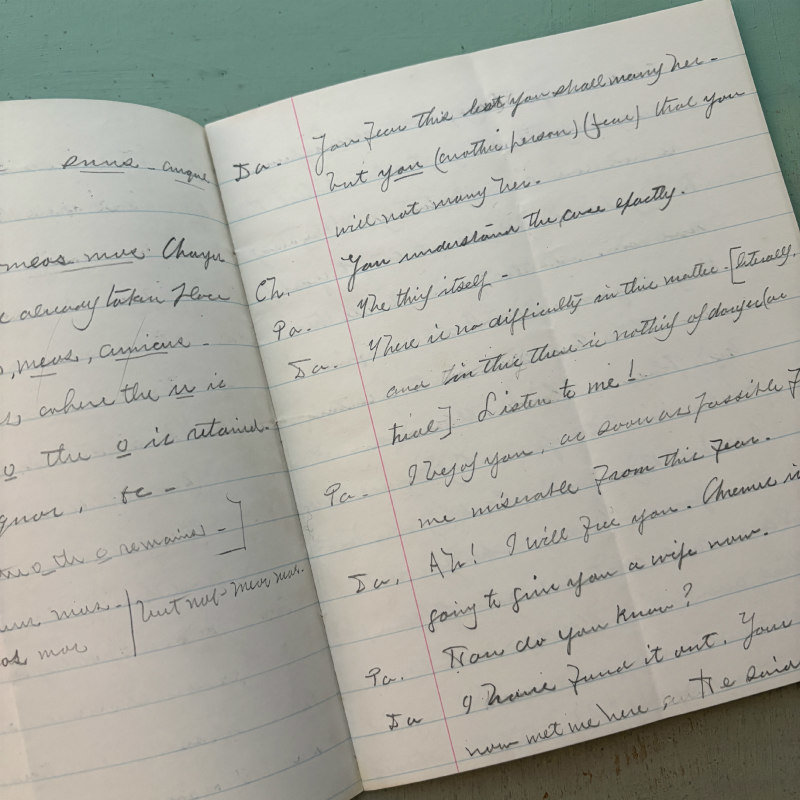 suus - cuique
meos mos. Change
already taken place
meos, amicus -
where the u is
o. the o is retained.
&c -
the o remains -]
mos - | but not meos mos.
mos
Da. You fear this lest you shall marry her -
but you (another person) (fear) that you
will not marry her.
Ch. You understand the case exactly.
Pa. The thing itself -
Da. There is no difficulty in this matter. [literally.
and in this there is nothing of danger (or
trial] Listen to me!
Pa. I beg of you, as soon as possible
me miserable from this fear.
Da. Ah! I will free you. Chremes is
going to give you a wife now.
Pa. How do you know?
Da I have fund it out. Your
now met me here He said